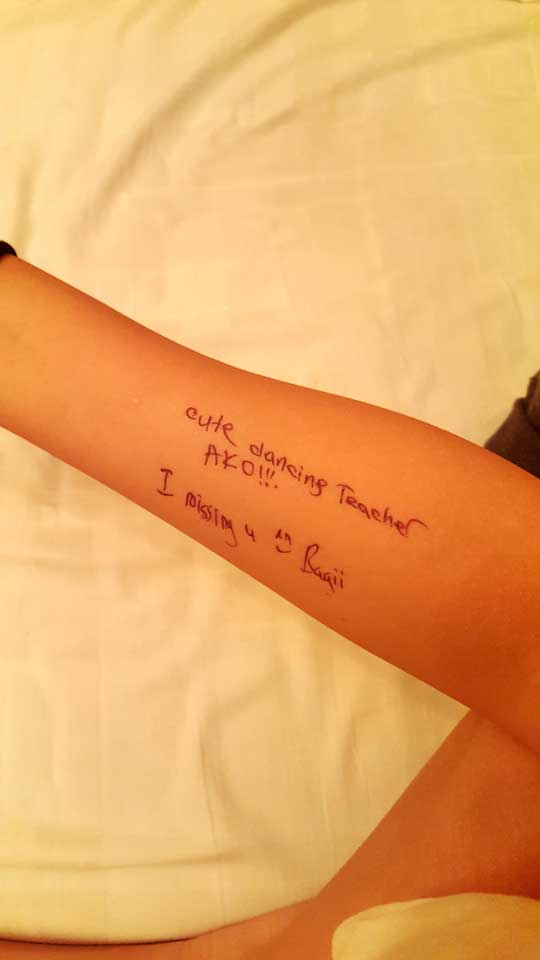 cute dancing Teacher
AKO!!!
I missing u ^^ Bagii